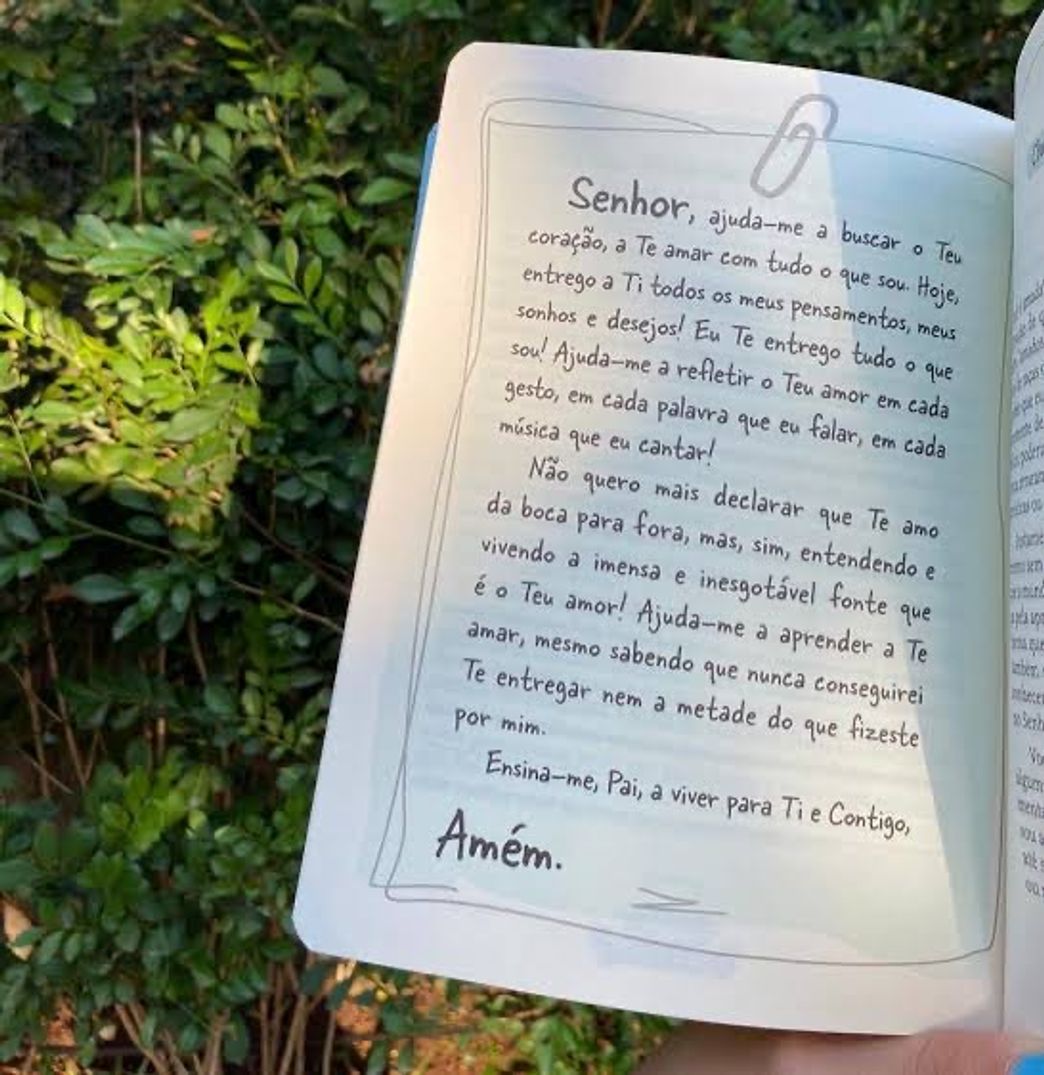 Senhor, ajuda-me a buscar o Teu
coração, a Te amar com tudo o que sou. Hoje,
entrego a Ti todos os meus pensamentos, meus
sonhos e desejos! Eu Te entrego tudo o que
sou! Ajuda-me a refletir o Teu amor em cada
gesto, em cada palavra que eu falar, em cada
música que eu cantar!
Não quero mais declarar que Te amo
da boca para fora, mas, sim, entendendo e
vivendo a imensa e inesgotável fonte que
é o Teu amor! Ajuda-me a aprender a Te
amar, mesmo sabendo que nunca conseguirei
Te entregar nem a metade do que fizeste
por mim.
Ensina-me, Pai, a viver para Ti e Contigo,
Amém.